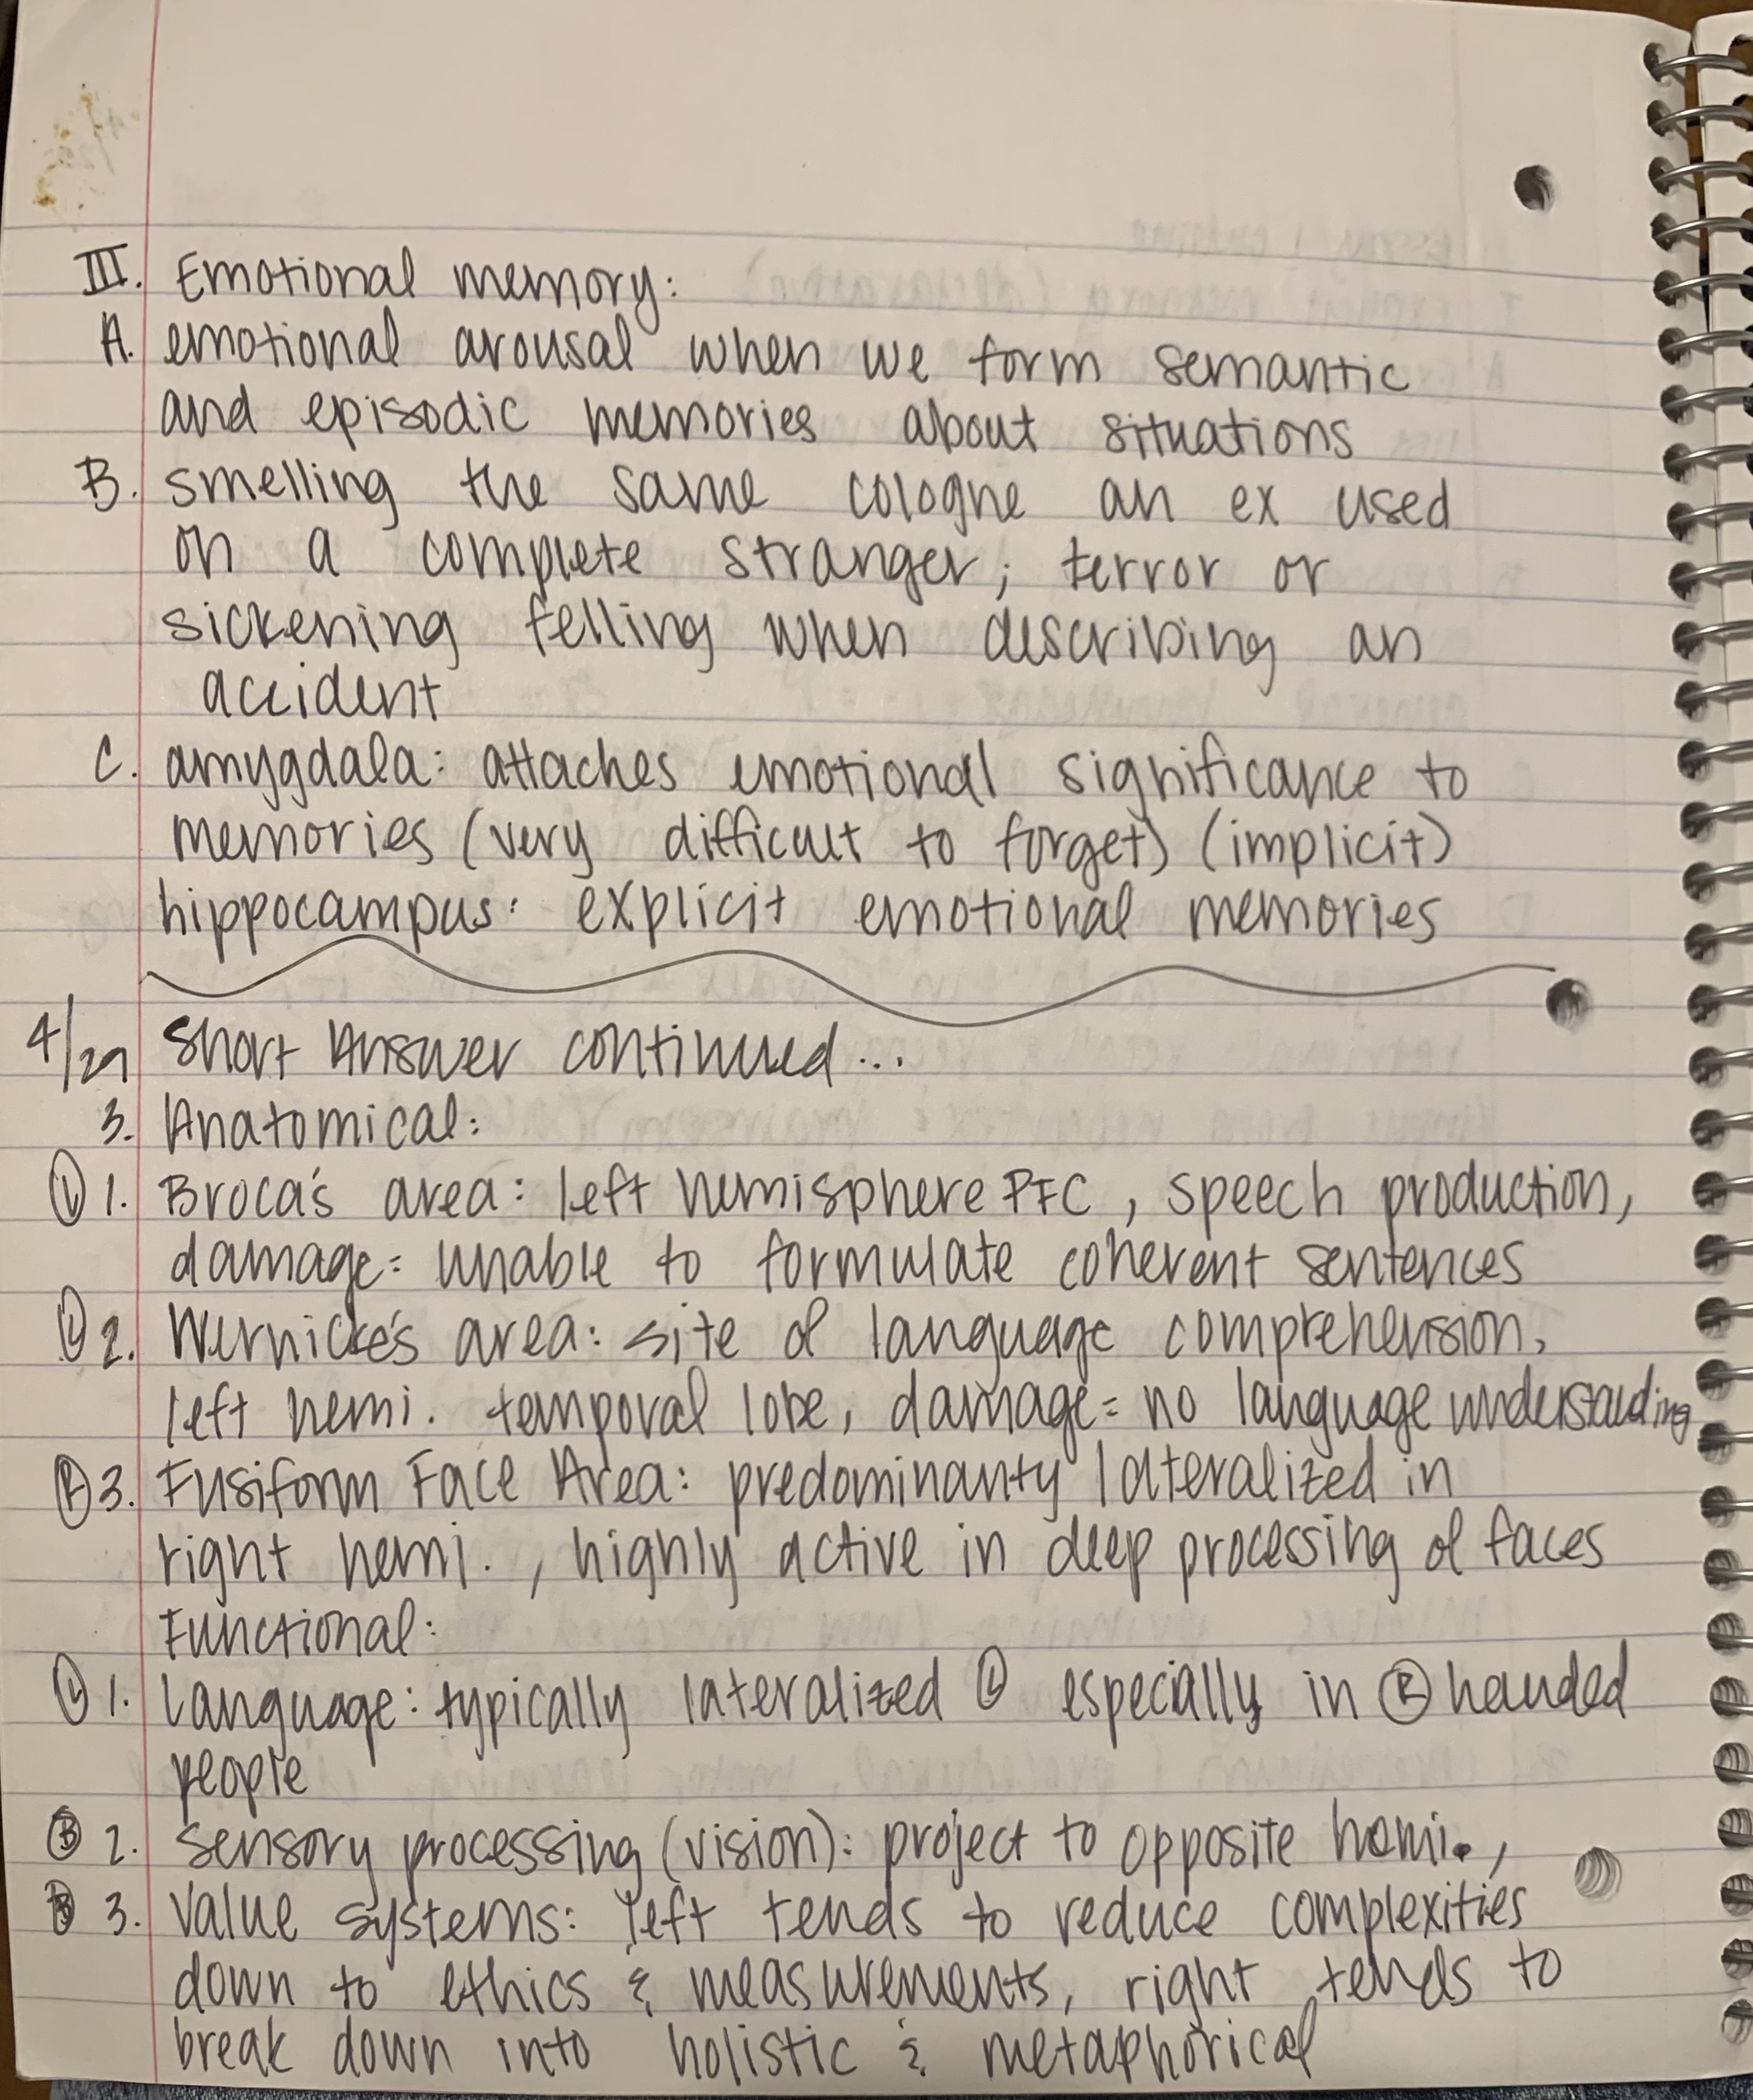 III. Emotional memory:
A. emotional arousal when we form semantic
and episodic memories about situations
B. smelling the same cologne an ex used
on a complete stranger; terror or
sickening felling when describing an
accident
C. amygdala: attaches emotional significance to
memories (very difficult to forget) (implicit)
hippocampus: explicit emotional memories
4/29 Short Answer continued...
3. Anatomical:
Ⓛ 1. Broca's area: left hemisphere PFC, speech production,
damage = unable to formulate coherent sentences
Ⓛ 2. Wernicke's area: site of language comprehension,
left hemi. temporal lobe, damage = no language understanding
Ⓡ 3. Fusiform Face Area: predominanty lateralized in
right hemi., highly active in deep processing of faces
Functional:
Ⓛ 1. Language: typically lateralized Ⓛ especially in Ⓡ handed
people
Ⓑ 2. sensory processing (vision): project to opposite hemi.,
Ⓑ 3. Value systems: left tends to reduce complexities
down to ethics & measurements, right tends to
break down into holistic & metaphorical